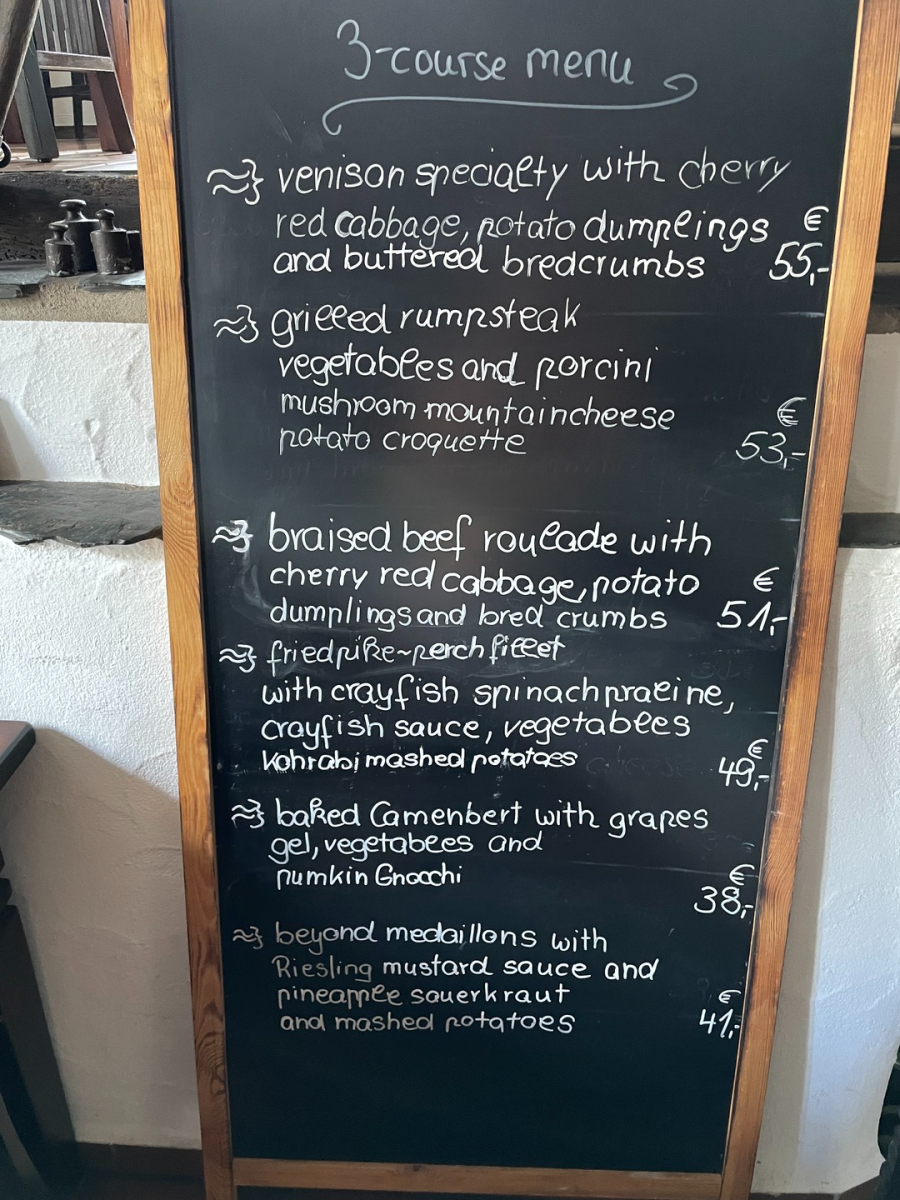 3-course menu
venison specialty with cherry
red cabbage, potato dumplings €
and buttered bredcrumbs 55,-
grilled rumpsteak
vegetables and porcini
mushroom mountaincheese €
potato croquette 53,-
braised beef roulade with
cherry red cabbage, potato €
dumplings and bred crumbs 51,-
fried pike~perch fillet
with crayfish spinach praline,
crayfish sauce, vegetables €
kohrabi mashed potatoes 49,-
baked Camenbert with grapes
gel, vegetables and €
pumkin Gnocchi 38,-
beyond medaillons with
Riesling mustard sauce and
pineapple sauerkraut €
and mashed potatoes 41,-